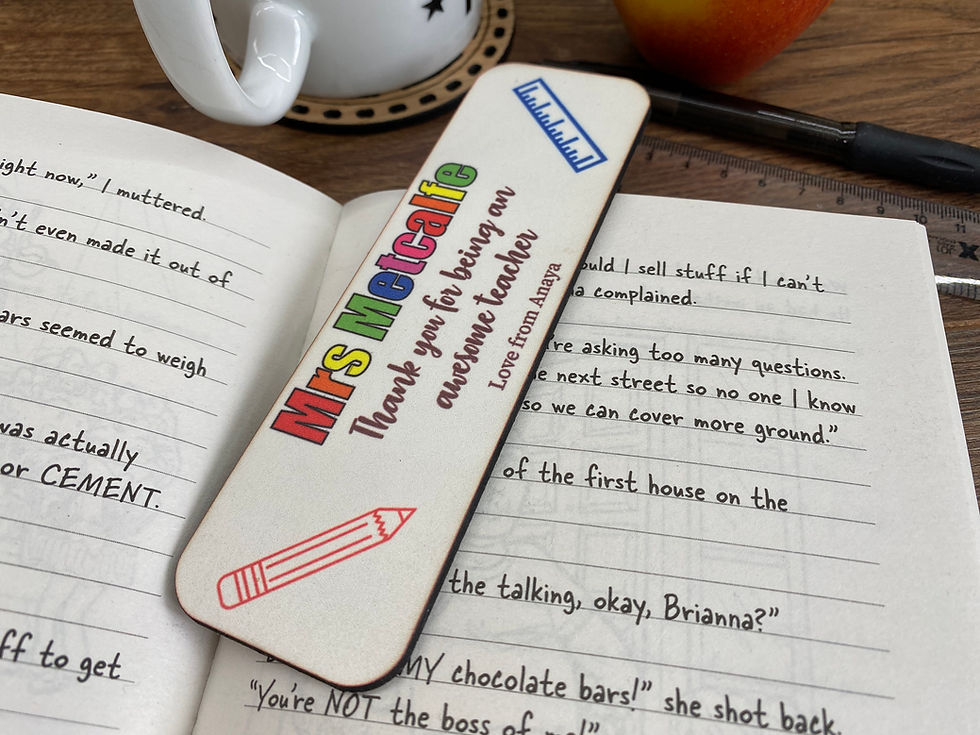 ight now," I muttered.
n't even made it out of
ars seemed to weigh
was actually
or CEMENT.
ff to get
Mrs Metcalfe
Thank you for being an
awesome teacher
Love from Anaya
ould I sell stuff if I can't
a complained.
're asking too many questions.
e next street so no one I know
so we can cover more ground."
of the first house on the
the talking, okay, Brianna?"
MY chocolate bars!" she shot back.
"You're NOT the boss of me!"
5 6 7 8 9 10 11